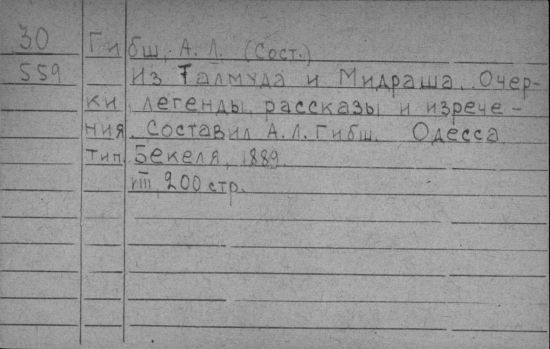 30
559
Гибш, А. Л. (Сост.)
Из Талмуда и Мидраша. Очер-
ки, легенды, рассказы и изрече-
ния. Составил А. Л. Гибш. Одесса,
тип. Бекеля, 1889.
VIII, 200 стр.